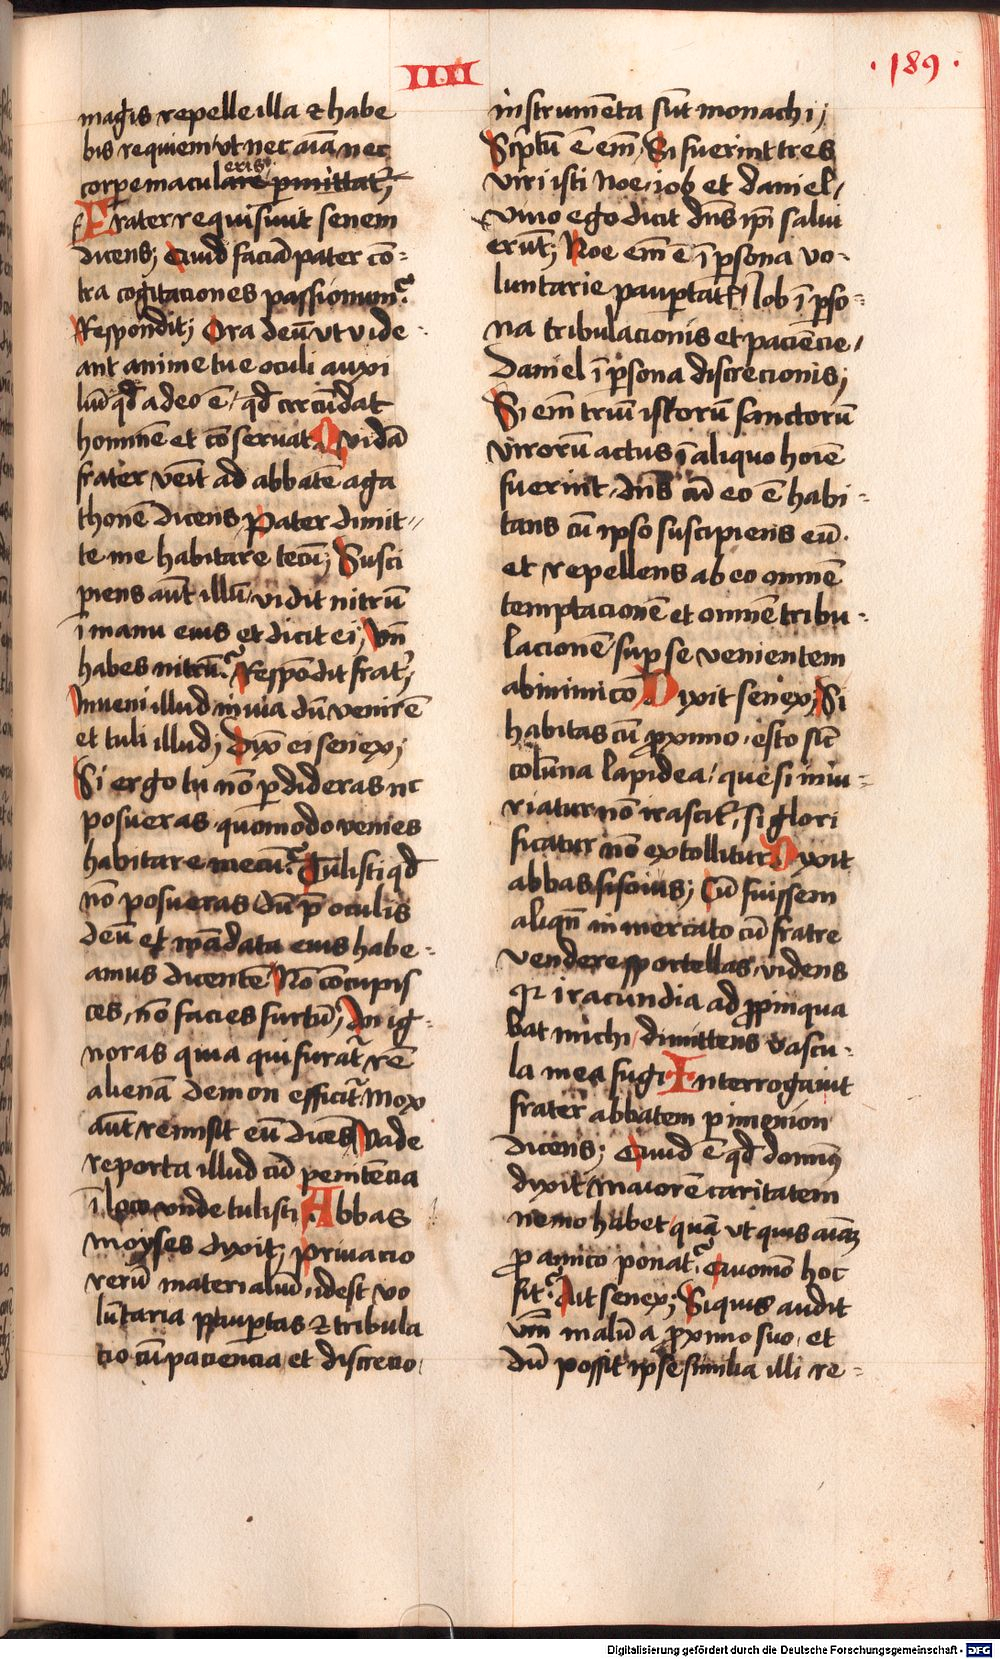 IIII
·189·
magis repelle illa et habe
bis requiem / vt nec aīam nec
corpe maculare eris p̄mittat᷒;
Frater requisiuit senem
dicens; Quid faciā pater cō-
tra cogitaciones passionum?
Respondit; Ora deū vt vide-
ant anime tue oculi auxi
liū qd̄ a deo ē / qd̄ circūdat
hominē et cōseruat Quidā
frater venīt ad abbatē aga
thonē dicens Pater dimit-
te me habitare tecū; Susci
piens aūt illū / vidit nitrū
ī manu eius et dicit ei; Vn̄
habes nitrū? Respōdit frat᷒;
Inueni illud in via dū venirē
et tuli illud; Dix̄ ei senex;
Si ergo tu nō p̱dideras nc
posueras quomodo venies
habitare mecū? Tulisti qd̄
nō posueras dū p̄ oculis
deū et mādata eius habe-
amus dicentē Nō cōcupis
ces, nō facies furtū; An ig-
noras quia qui furat᷒ rē
alienā demon efficit᷒ Mox
aūt remisit eū dicēs Vade
reporta illud cū penitēcia
ī loco vnde tulisti Abbas
moyses dixit; Priuacio
rerū materialiū, idest vo
lūtaria paup̱tas et tribula
cio cū paciencia et discrecio
instrumēta sūt monachi;
Scp̄tū ē em̄, Si fuerint tres
viri isti Noe, iob et daniel /
viuo ego dicit dn̄s ip̄i salui
erūt; Noe em̄ ē ī p̱sona vo-
luntarie paup̱tat᷒ Iob ī p̱so-
na tribulacionis et paciēcie,
Daniel ī p̱sona discrecionis;
Si em̄ triū istorū sanctorū
virorū actus ī aliquo hoīe
fuerint, dn̄s cū eo ē habi-
tans cū ipso suscipiens eū.
et repellens ab eo omnē
temptacionē et omnē tribu-
lacionē sup̱ se venientem
ab inimico Dixit senex; Si
habitas cū p̱ximo, esto sic̄
colūna lapidea / que si iniu-
riatur nō irascit᷒, si glori
ficatur nō extollitur Dixit
abbas sisoius; Cū fuissem
aliqn̄ in mercato cū fratre
vendere sportellas, videns
qꝛ iracundia ad p̱pinqua
bat michi / dimittens vascu-
la mea fugi Interrogauit
frater abbatem pimenion
dicens; Quid ē qd̄ domin⁹
dixit Maiorē caritatem
nemo habet quā vt quis aīaꝫ
p̱ amico ponat᷒? Quomō hoc
fit? Ait senex; Si quis audit
vm̄ malū a p̱ximo suo, et
dū possit ipse similia illi re-
Digitalisierung gefördert durch die Deutsche Forschungsgemeinschaft - DFG